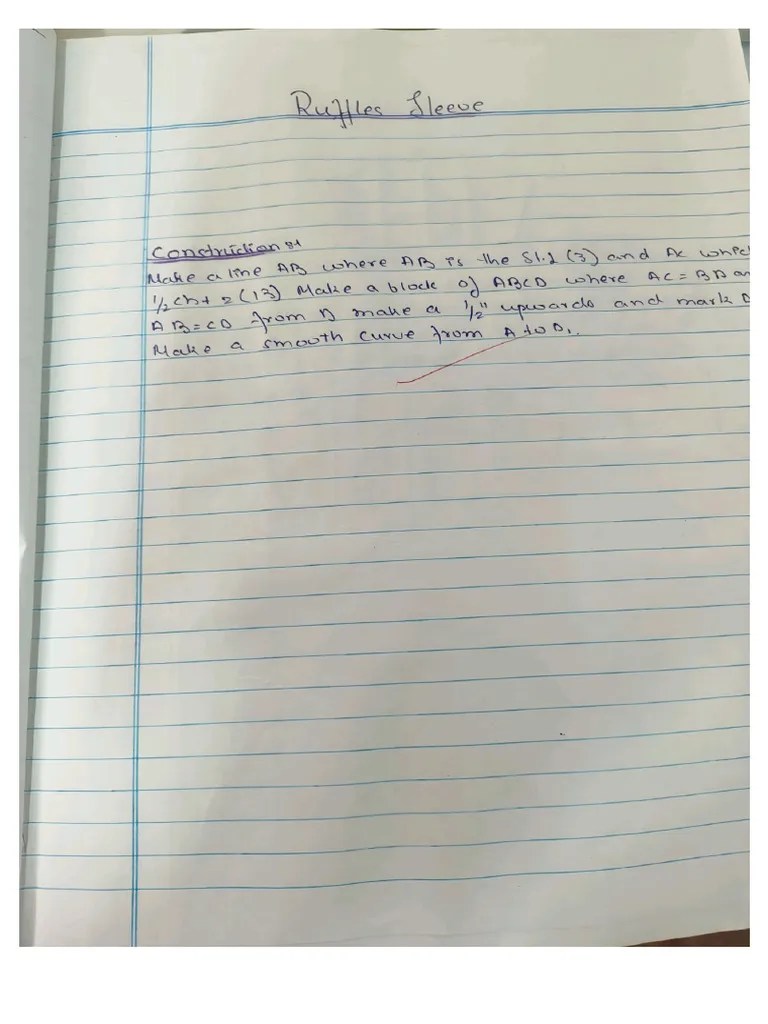 Ruffles Sleeve
Construction :-
Make a line AB where AB is the Sl.l (3) and AC whic
1/2 ch + 2 (13) Make a block of ABCD where AC = BD an
AB = CD from D make a 1/2" upwards and mark D
Make a smooth curve from A to D1.